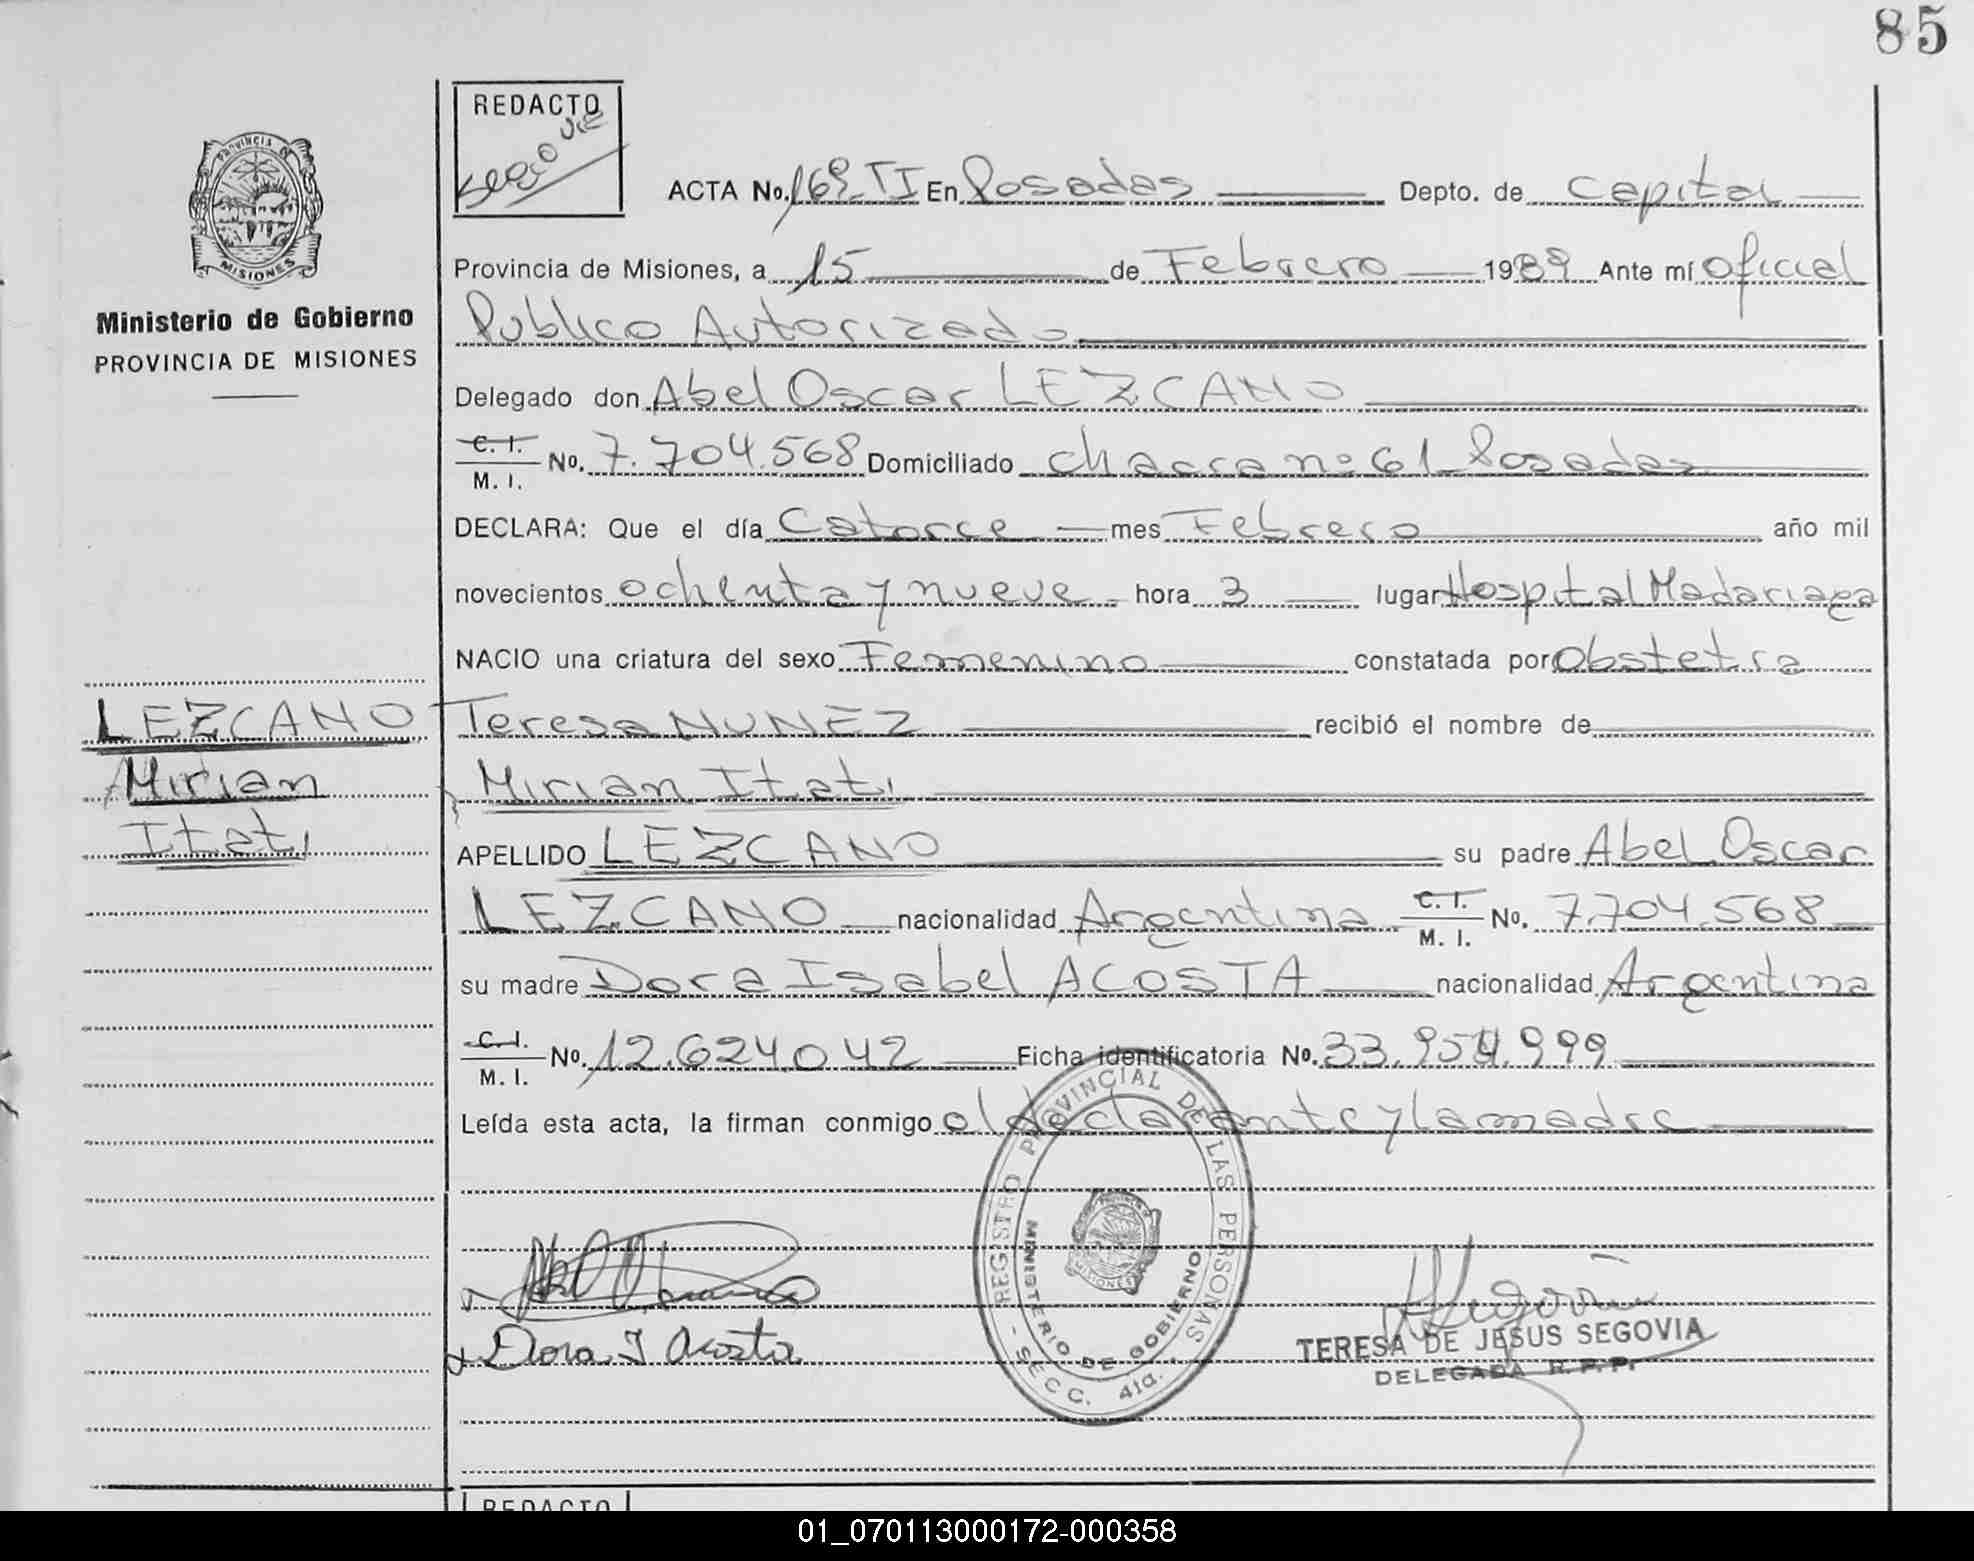 85
REDACTO
ACTA No. 169 TI En Posadas Depto. de Capital
PROVINCIA DE
MISIONES
Provincia de Misiones, a 15 de Febrero 1989 Ante mí oficial
Ministerio de Gobierno
Publico Autorizado
PROVINCIA DE MISIONES
Delegado don Abel Oscar LEZCANO
C. I.
M. I. No. 7.704.568 Domiciliado chacra nº 61 Posadas
DECLARA: Que el día Catorce mes Febrero año mil
novecientos ochenta y nueve hora 3 lugar Hospital Madariaga
NACIO una criatura del sexo Femenino constatada por Obstetra
LEZCANO
Teresa NUNEZ recibió el nombre de
Mirian
Mirian Itati
Itati
APELLIDO LEZCANO su padre Abel Oscar
LEZCANO nacionalidad Argentina C. I. M. I. No. 7.704.568
su madre Dora Isabel ACOSTA nacionalidad Argentina
C. I.
M. I. No. 12.624.042 Ficha identificatoria No. 33.954.999
Leída esta acta, la firman conmigo el declarante y la madre
REGISTRO PROVINCIAL DE LAS PERSONAS
MINISTERIO DE GOBIERNO
MISIONES
SECC. 41a.
Dora I Acosta
TERESA DE JESUS SEGOVIA
DELEGADA R. P. P.
REDACTO
01_070113000172-000358